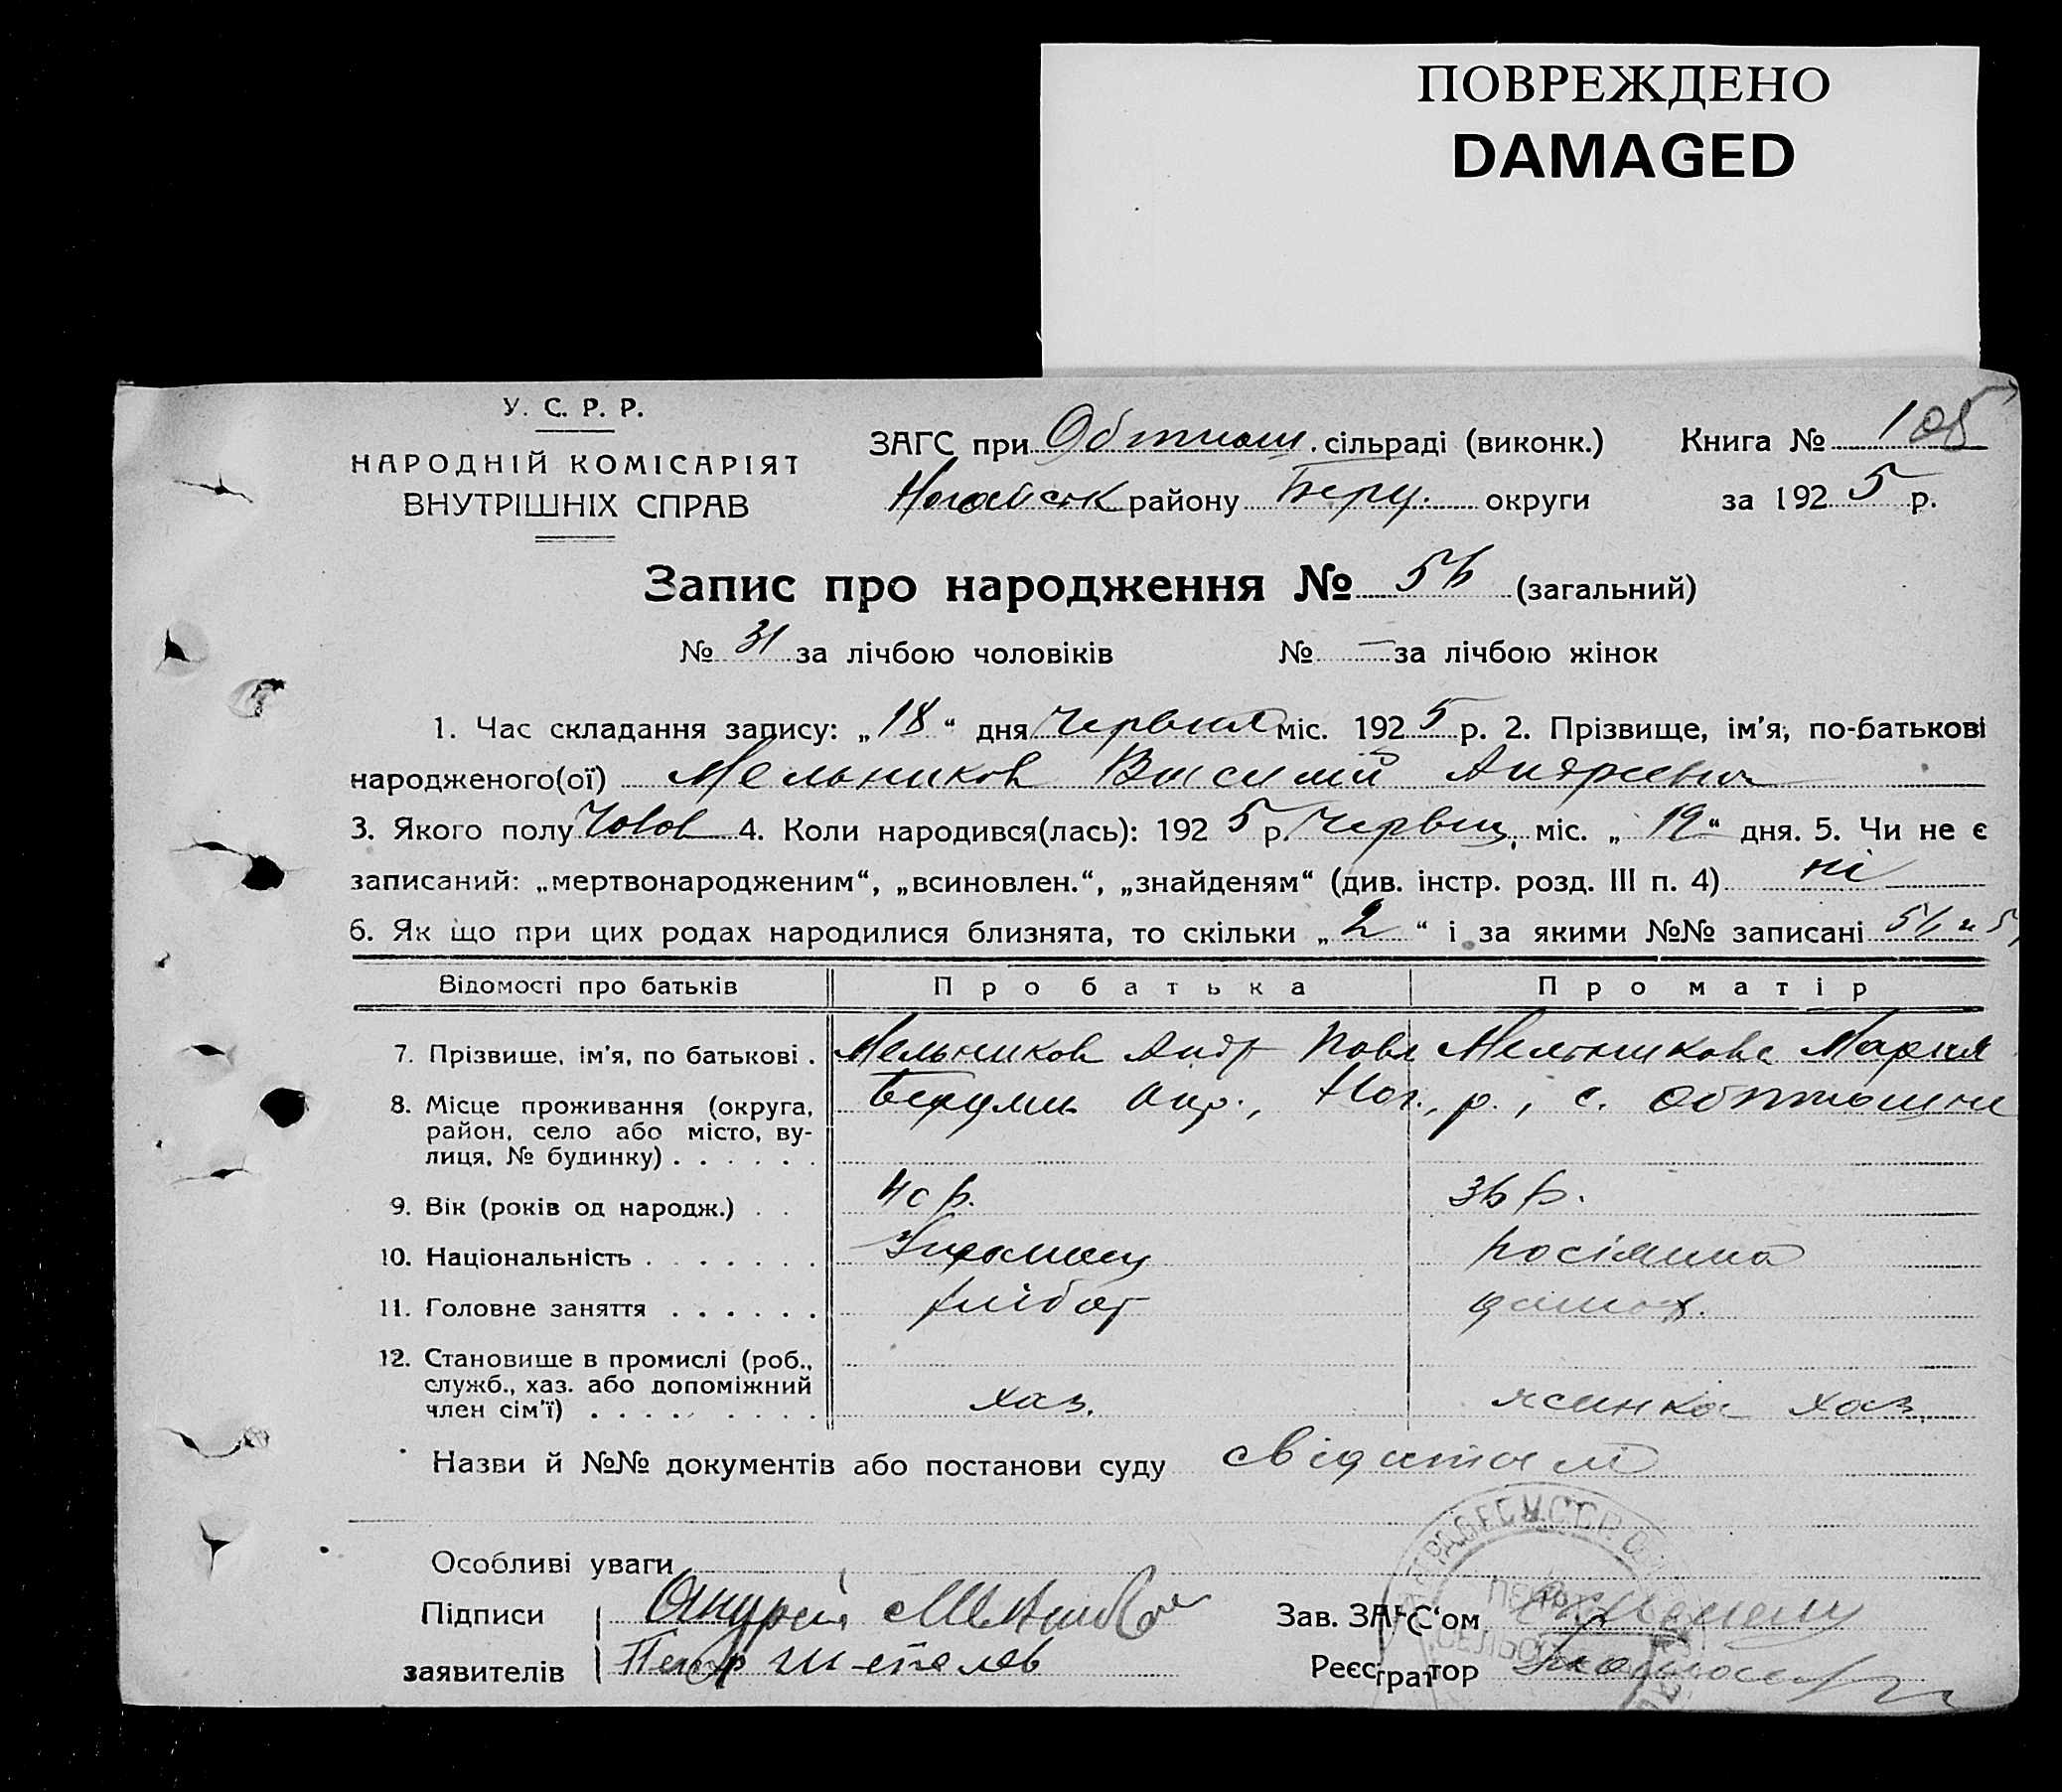 ПОВРЕЖДЕНО
DAMAGED
У. С. Р. Р.
НАРОДНІЙ КОМІСАРІЯТ
ВНУТРІШНІХ СПРАВ
ЗАГС при Обтиош. сільраді (виконк.)
Ногайськ району Берд. округи
Книга № 1
за 1925 р.
Запис про народження № 56 (загальний)
№ 31 за лічбою чоловіків № — за лічбою жінок
1. Час складання запису: „18“ дня Червня міс. 1925 р. 2. Прізвище, ім'я, по-батькові
народженого(ої) Мельников Василий Андреевич
3. Якого полу Чолов 4. Коли народився(лась): 1925 р. Червц. міс. „19“ дня. 5. Чи не є
записаний: „мертвонародженим“, „всиновлен.“, „знайденям“ (див. інстр. розд. III п. 4) ні
6. Як що при цих родах народилися близнята, то скільки „2“ і за якими №№ записані 56 и 5
Відомості про батьків Про батька Про матір
7. Прізвище, ім'я, по батькові . Мельников Андр Павл Мельникова Мария
8. Місце проживання (округа, район, село або місто, вулиця, № будинку) . . . . . . Бердян. окр., Ног., р., с.
9. Вік (років од народж.) . . 40 р. 36 р.
10. Національність . . . . . . . Украинец росіянка
11. Головне заняття . . . . . . хлібор домох.
12. Становище в промислі (роб., служб., хаз. або допоміжний член сім'ї) . . . . . . . . . хаз. жінка хаз.
Назви й №№ документів або постанови суду
Особливі уваги
Підписи Андрей Мельников Зав. ЗАГС'ом
заявителів Петр Шепелев Реєстратор